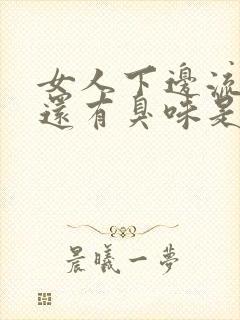 女人下邊流
還有臭味是
晨曦一夢